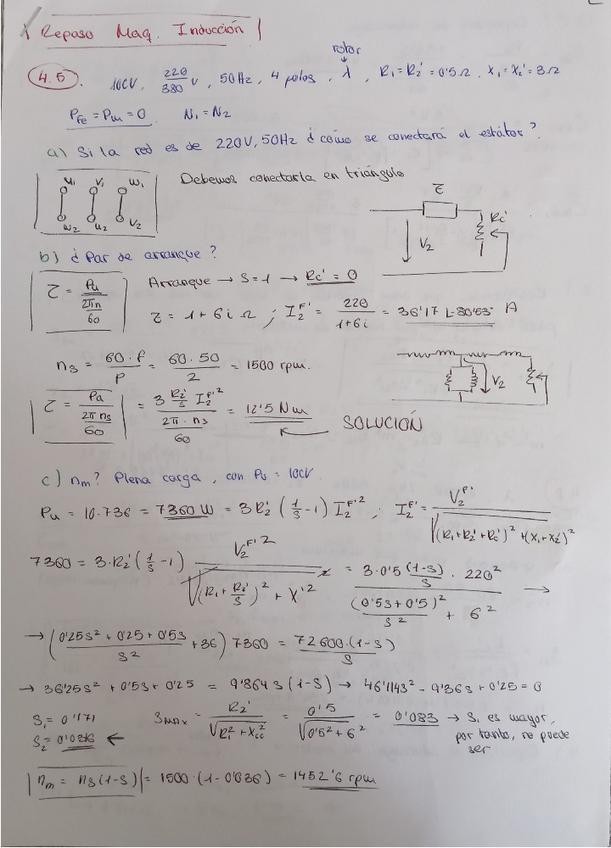 Repaso Maq. Inducción
rotor
4.5. 10CV, 220/380 V, 50Hz, 4 polos, λ, R1=R2'=0'5Ω, X1=X2'=3Ω
PFe = Pm = 0 N1=N2
a) Si la red es de 220V, 50Hz ¿cómo se conectará el estátor?
U1 V1 W1 Debemos conectarla en triángulo
W2 U2 V2
Z̄ Rc' V2
b) ¿Par de arranque?
τ = Pu / (2πn/60) Arranque → S=1 → Rc' = 0
Z = 1+6i Ω ; I2F' = 220/(1+6i) = 36'17 ∟-80'53 A
n3 = 60·f/P = 60·50/2 = 1500 rpm.
V2
τ = Pa / (2π n3/60) = 3 R2'/S I2F'² / (2π·n3/60) = 12'5 Nm
SOLUCIÓN
c) nm? Plena carga, con Pu = 10CV
Pu = 10·736 = 7360 W = 3R2' (1/S -1) I2F'² ; I2F' = V2F' / √((R1+R2'+Rc')² + (X1+X2')²
7360 = 3·R2' (1/S -1) V2F'² / √(R1+R2'/S)² + X'² ² = 3·0'5 (1-S)/S · 220² / ((0'5S+0'5)²/S² + 6²) →
→ (0'25S² + 0'25 + 0'5S / S² + 36) 7360 = 72600·(1-S)/S
→ 36'25S² + 0'5S + 0'25 = 9'864 S (1-S) → 46'114S² - 9'36S + 0'25 = 0
S1 = 0'171 SMAX = R2' / √(R1² + Xcc²) = 0'5 / √(0'5² + 6²) = 0'083 → S1 es mayor,
S2 = 0'036 ← por tanto, no puede
ser
nm = n3(1-S) = 1500·(1-0'036) = 1452'6 rpm